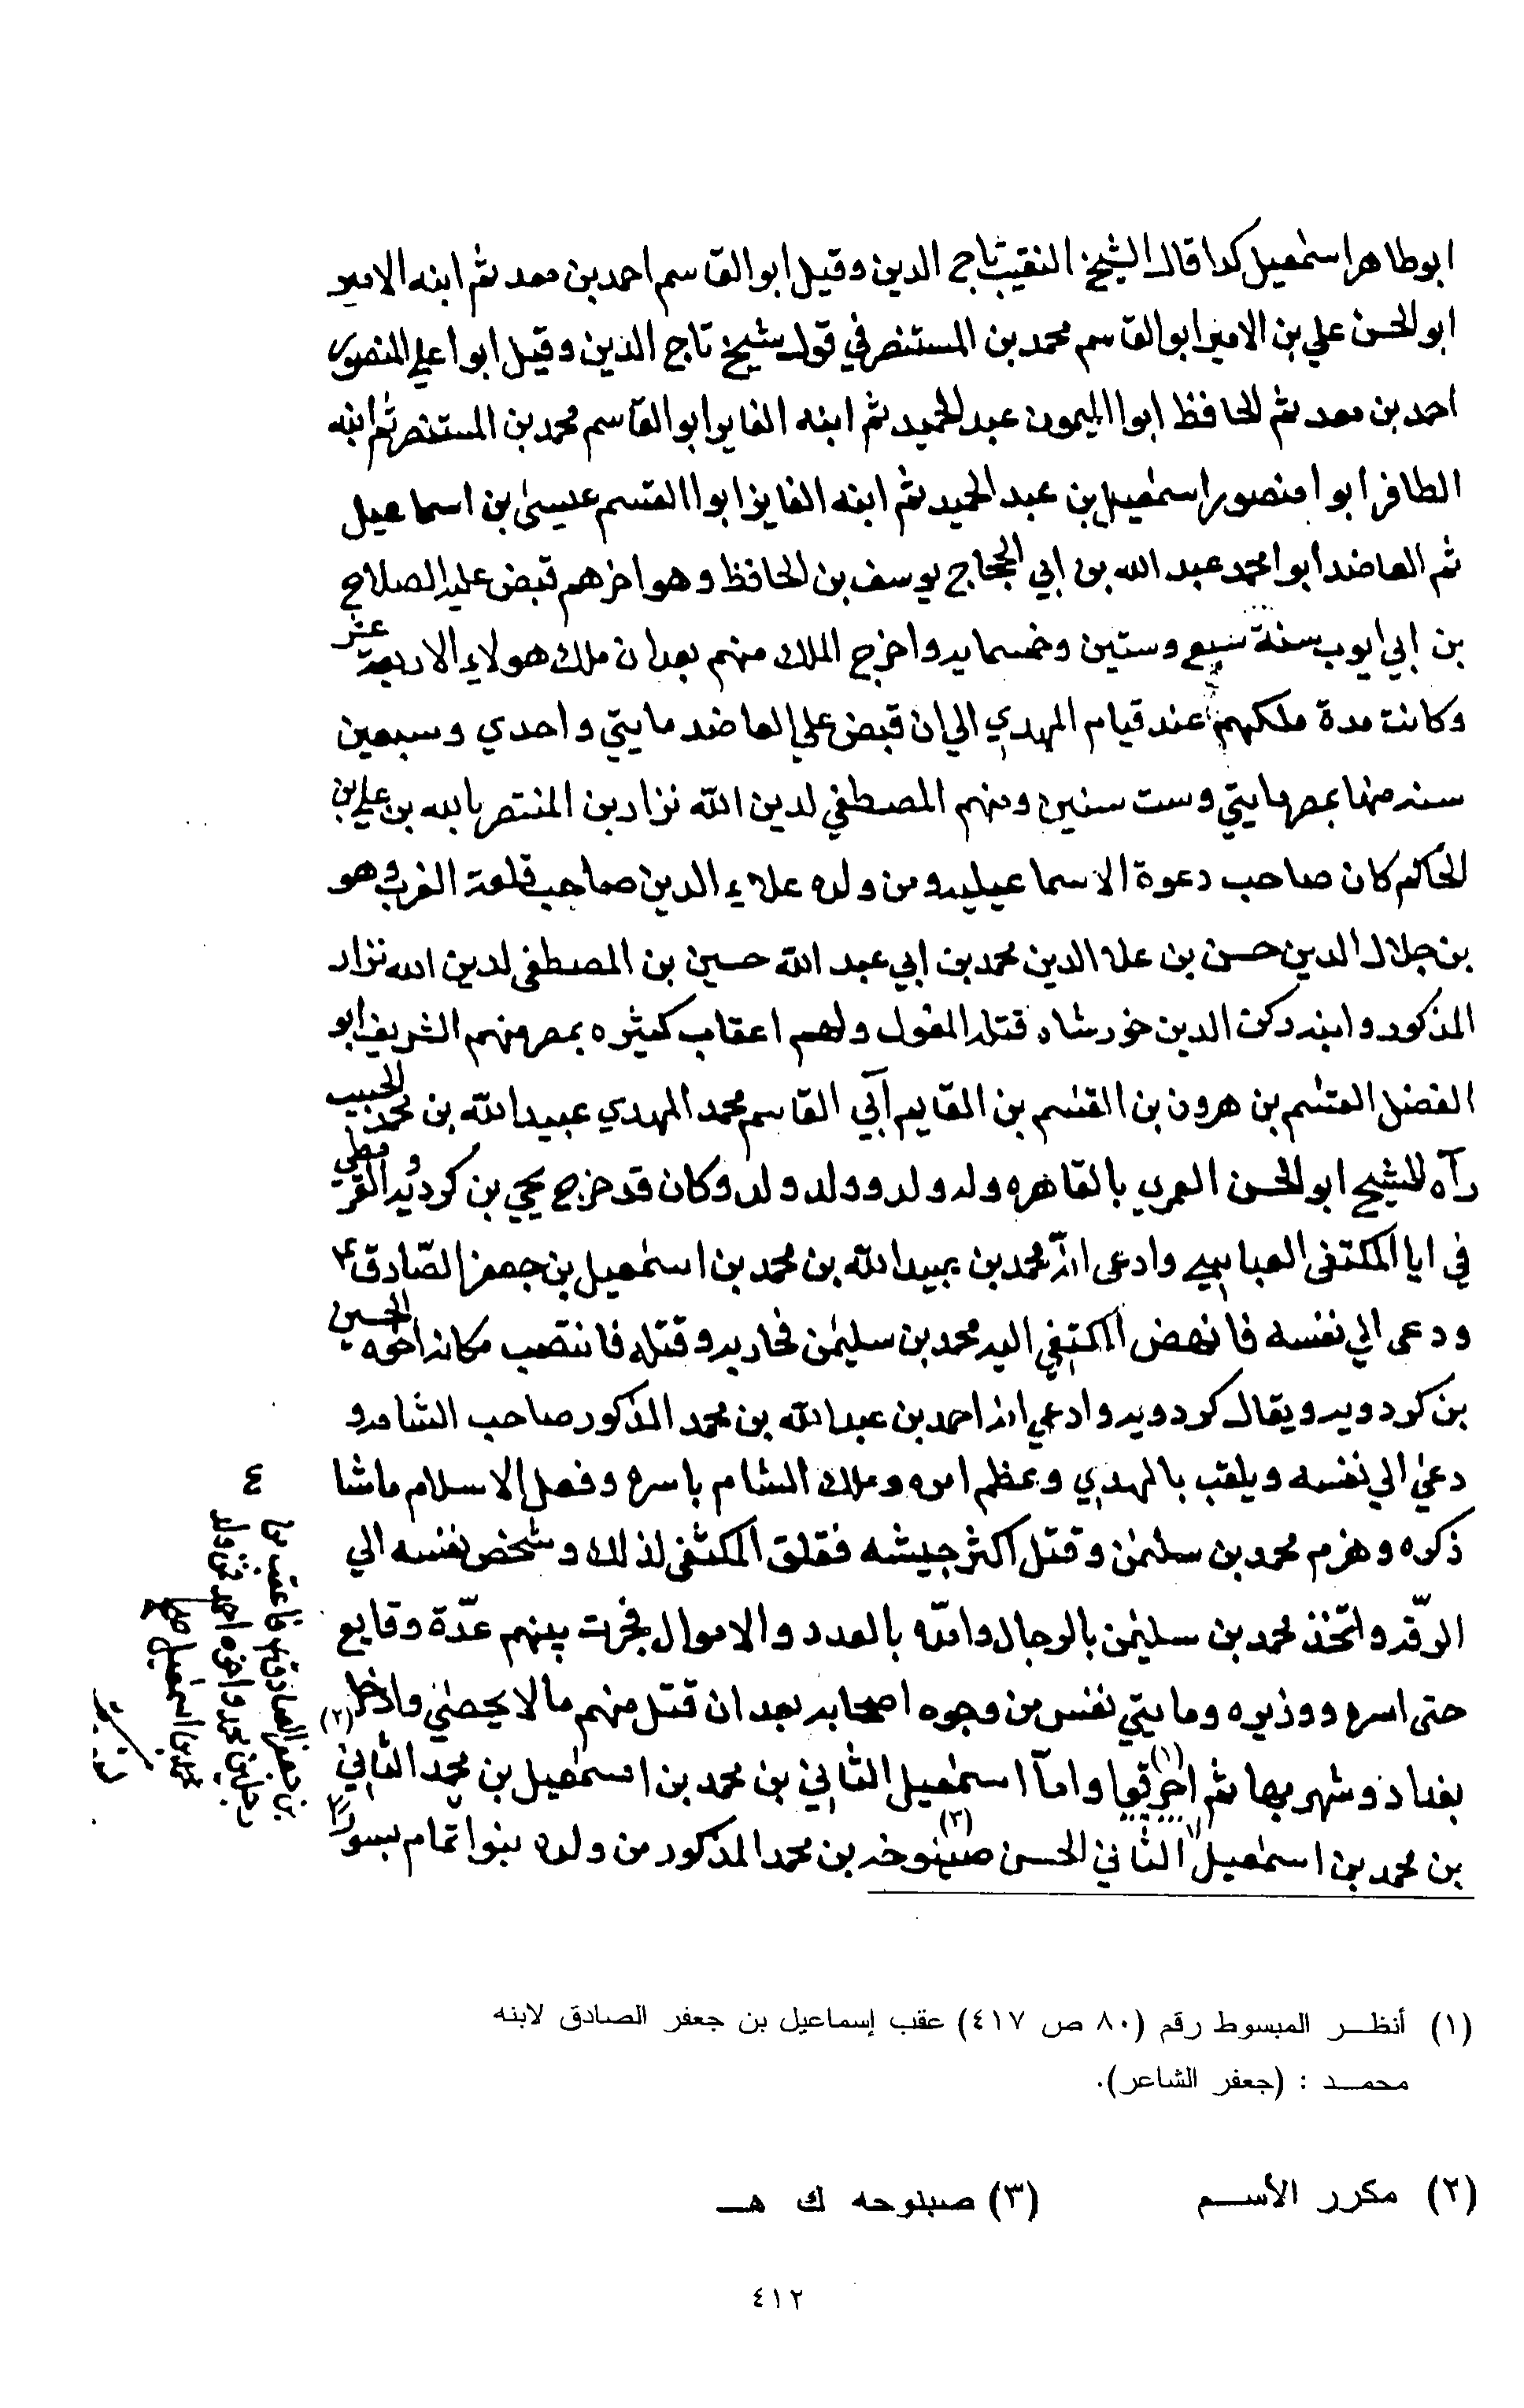 ابوطاهر اسمعيل كدا قال الشيخ النقيب تاج الدين وقيل ابوالقاسم احمد بن معد ثم ابنه الامير
ابوالحسن علي بن الامير ابوالقاسم محمد بن المستنصر في قول شيخ تاج الدين وقيل ابوا علي المنصور
احمد بن معد ثم الحافظ ابوا الميمون عبد الحميد ثم ابنه الفايز ابوالقاسم محمد بن المستنصر ثم ابنه
الطافر ابوا منصور اسمعيل بن عبد الحميد ثم ابنه الفايز ابوا القسم عيسى بن اسماعيل
ثم العاضد ابوا محمد عبد الله بن ابي الحجاج يوسف بن الحافظ وهو اخرهم قبض عليه الصلاح
بن ابي ايوب سنة سبع وستين وخمسمايه واخرج الملك منهم بعد ان ملك هولاء الاربعة عشر
وكانت مدة ملكهم عند قيام المهدي الي ان قبض علي العاضد مايتي واحدي وسبعين
سنه منها بمصر مايتي وست سنين ومنهم المصطفي لدين الله نزار بن المنتصر بالله بن علي بن
الحاكم كان صاحب دعوة الاسماعيليه ومن ولده علاء الدين صاحب قلعة الغرب وهو
بن جلال الدين حسن بن علا الدين محمد بن ابي عبد الله حسين بن المصطفى لدين الله نزار
المذكور وابنه ركن الدين خورشاه قتله المغول ولهم اعقاب كثيره بمصر منهم الشريف ابو
الفضل القسم بن هرون بن القسم بن القايم آبي القاسم محمد المهدي عبيد الله بن محمد الحبيب
رآه الشيخ ابوالحسن العمري بالقاهره وله ولد وولد ولد وكان قد خرج يحيي بن كرديه القرمطي
في ايا المكتفى العباسي وادعى انه محمد بن عبيد الله بن محمد بن اسمعيل بن جعفر الصّادق ٤
ودعى الي نفسه فانهض المكتفي اليه محمد بن سليمن فحاربه وقتله فانتصب مكانه اخوه الحسين
بن كردويه ويقال كردويه وادعي انه احمد بن عبد الله بن محمد المذكور صاحب الشامه و
دعي الي نفسه ويلقب بالمهدي وعظم امره وملك الشام باسره وفعل الاسلام ماشا
ذكره وهزم محمد بن سليمن وقتل اكثر جيشه فقلق المكتفى لذلك وشخص بنفسه الي
الرقه واتخذ محمد بن سليمن بالرجال وامده بالعدد والاموال فجرت بينهم عدّة وقايع
حتى اسره ووزيره ومايتي نفس من وجوه اصحابه بعد ان قتل منهم مالا يحصى وادخل
بغداد وشهر بها ثم احرقوا (١) وامآ اسمعيل الثاني بن محمد بن اسمعيل بن محمد الثاني (٢)
بن محمد بن اسمعيل الثاني الحسن صبنوخه (٣) بن محمد المذكور من ولده بنوا تمام بسورا
٤
(١) أنظر المبسوط رقم (٨٠ ص ٤١٧) عقب إسماعيل بن جعفر الصادق لابنه
محمد : (جعفر الشاعر).
(٢) مكرر الأسم (٣) صبلوحه ك هـ
٤١٢